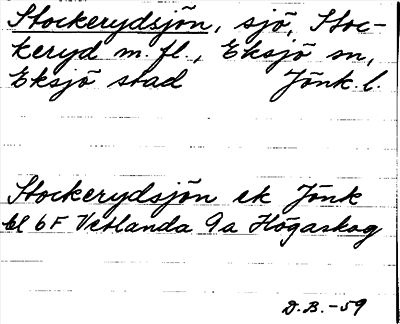 Stockerydsjön, sjö, Stoc-
keryd m.fl., Eksjö sn,
Eksjö stad Jönk. l.
Stockerydsjön ek Jönk
bl 6F Vetlanda 9a Högaskog
D.B.-59